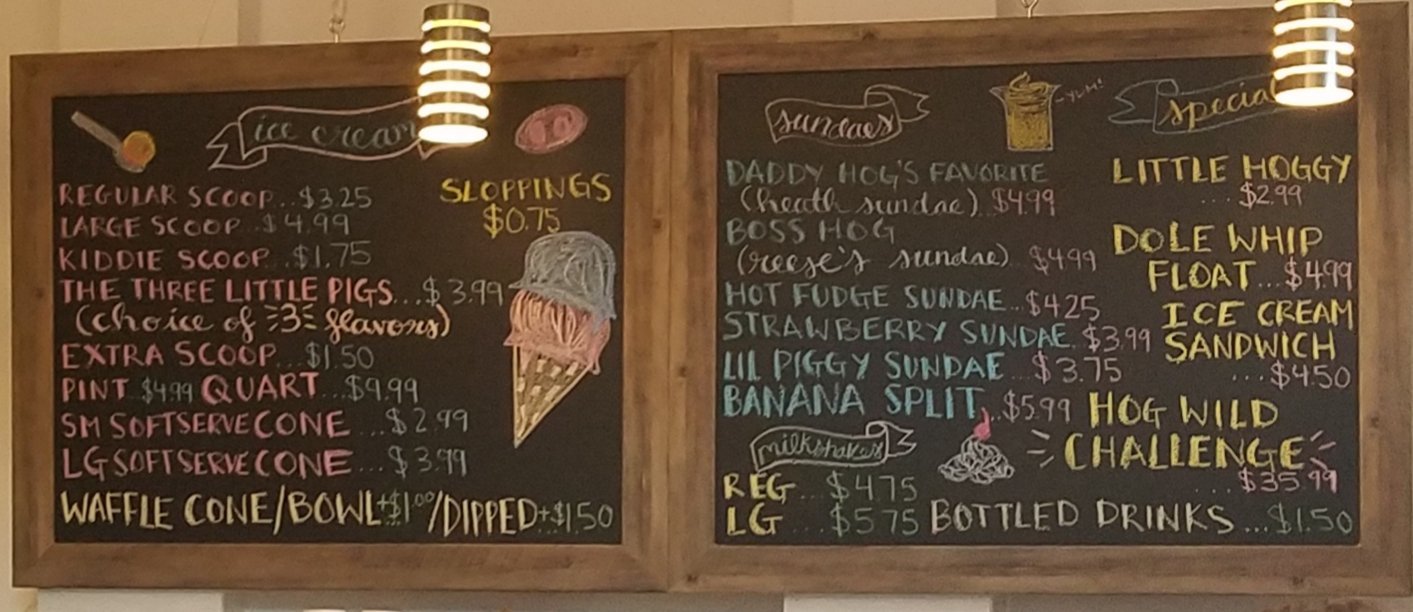 ice cream
REGULAR SCOOP...$3.25
LARGE SCOOP...$4.99
KIDDIE SCOOP...$1.75
THE THREE LITTLE PIGS...$3.99
(choice of 3 flavors)
EXTRA SCOOP...$1.50
PINT...$4.99 QUART...$9.99
SM SOFTSERVE CONE ...$2.99
LG SOFTSERVE CONE ...$3.99
WAFFLE CONE/BOWL+$1.00/DIPPED+$1.50
SLOPPINGS
$0.75
sundaes
DADDY HOG'S FAVORITE
(heath sundae)...$4.99
BOSS HOG
(reese's sundae)...$4.99
HOT FUDGE SUNDAE...$4.25
STRAWBERRY SUNDAE...$3.99
LIL PIGGY SUNDAE...$3.75
BANANA SPLIT...$5.99
milkshakes
REG...$4.75
LG...$5.75
-YUM!
special
LITTLE HOGGY
...$2.99
DOLE WHIP
FLOAT...$4.99
ICE CREAM
SANDWICH
...$4.50
HOG WILD
CHALLENGE
...$35.99
BOTTLED DRINKS...$1.50